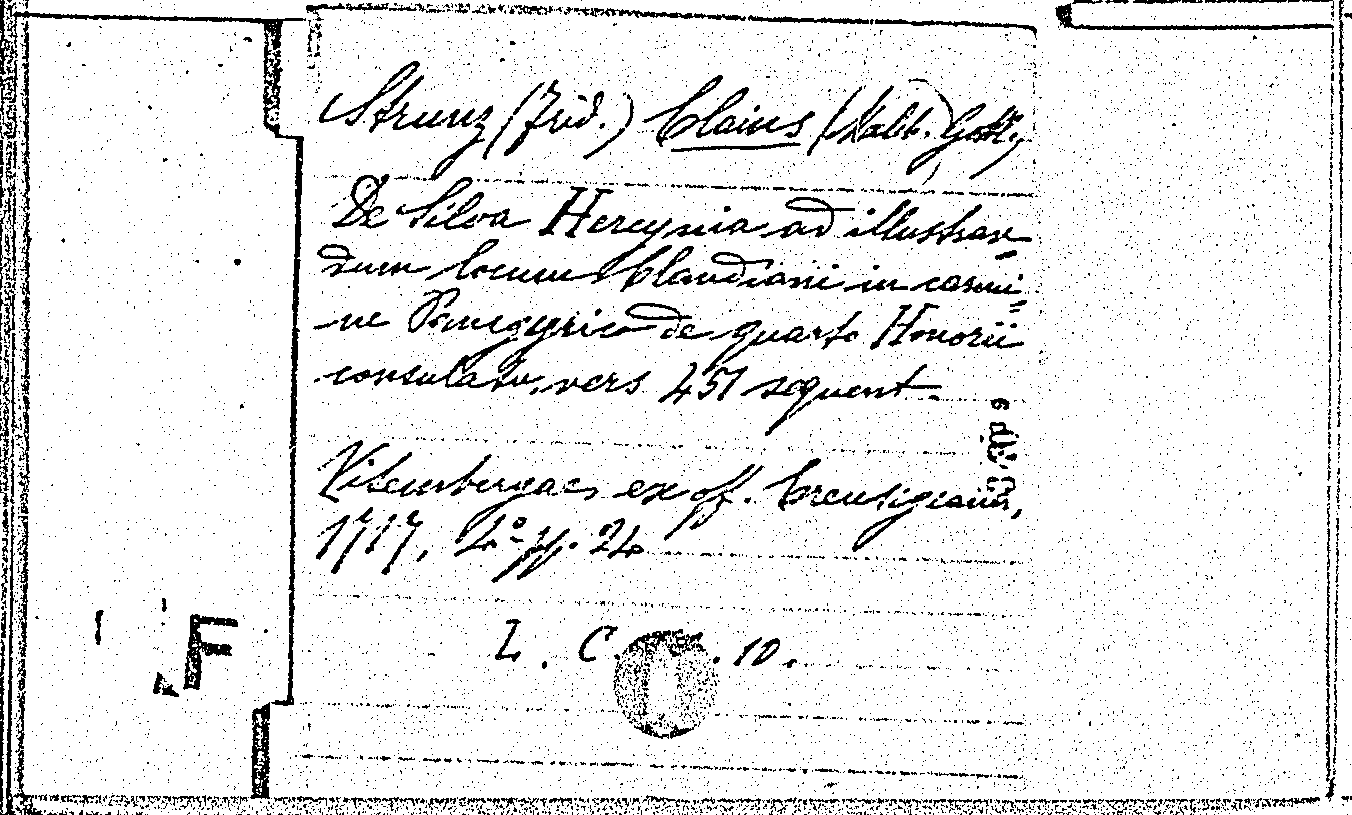 Strunz (Frid.) Claius (Walt. Gottl.)
De Silva Hercynia ad illustran-
dum locum Claudiani in carmi=
ne Panegyrico de quarto Honorii
consulato, vers 451 sequent.
Vitembergae, ex off. Creusigiana,
1717, 4° pp. 24
Z. C. 10.
F